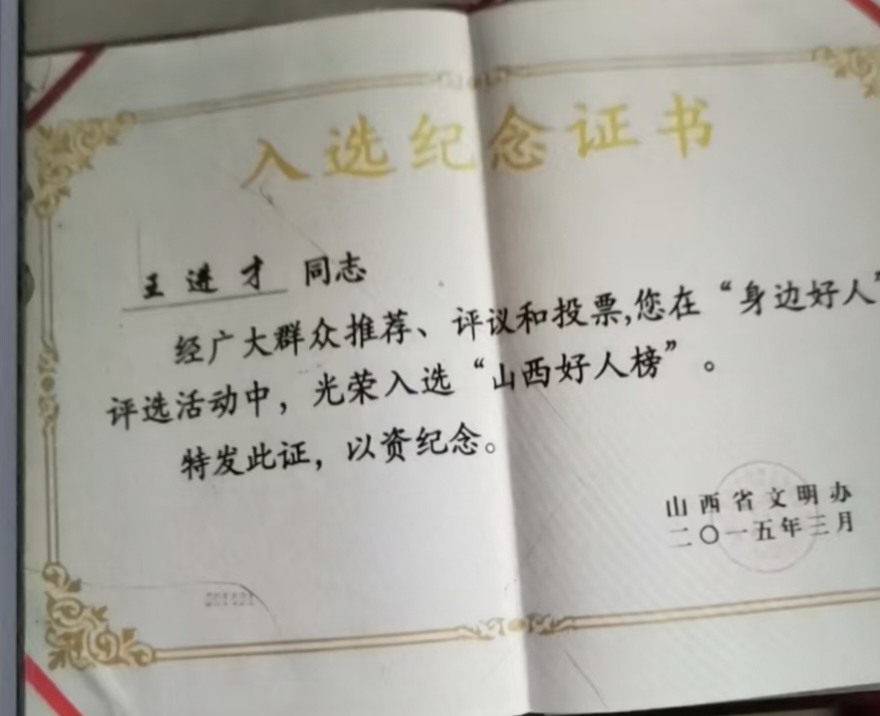 入选纪念证书
王进才 同志
经广大群众推荐、评议和投票,您在“身边好人”
评选活动中，光荣入选“山西好人榜”。
特发此证，以资纪念。
山西省文明办
二〇一五年三月